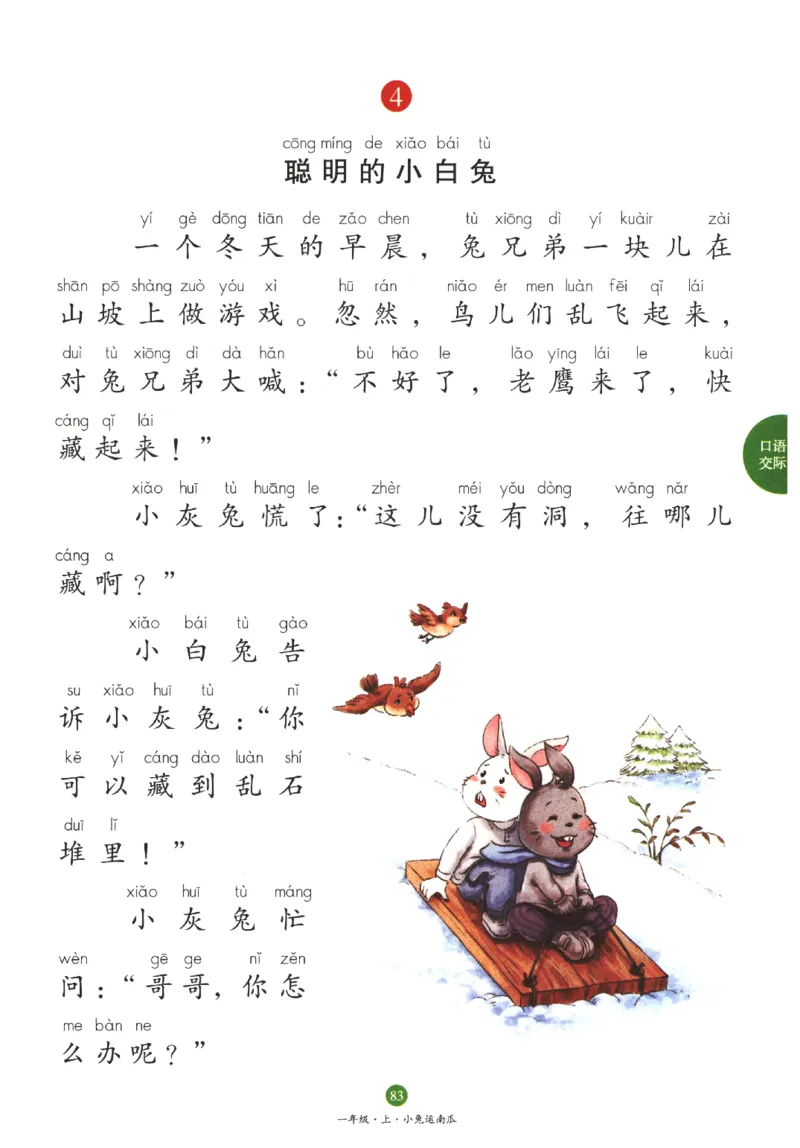 4
cōng míng de xiǎo bái tù
聪明的小白兔
yí gè dōng tiān de zǎo chen tù xiōng dì yí kuàir zài
一个冬天的早晨，兔兄弟一块儿在
shān pō shàng zuò yóu xì hū rán niǎo ér men luàn fēi qǐ lái
山坡上做游戏。忽然，鸟儿们乱飞起来，
duì tù xiōng dì dà hǎn bù hǎo le lǎo yīng lái le kuài
对兔兄弟大喊：“不好了，老鹰来了，快
cáng qǐ lái
藏起来！”
口语
交际
xiǎo huī tù huāng le zhèr méi yǒu dòng wǎng nǎr
小灰兔慌了：“这儿没有洞，往哪儿
cáng a
藏啊？”
xiǎo bái tù gào
小白兔告
su xiǎo huī tù nǐ
诉小灰兔：“你
kě yǐ cáng dào luàn shí
可以藏到乱石
duī lǐ
堆里！”
xiǎo huī tù máng
小灰兔忙
wèn gē ge nǐ zěn
问：“哥哥，你怎
me bàn ne
么办呢？”
83
一年级·上·小兔运南瓜